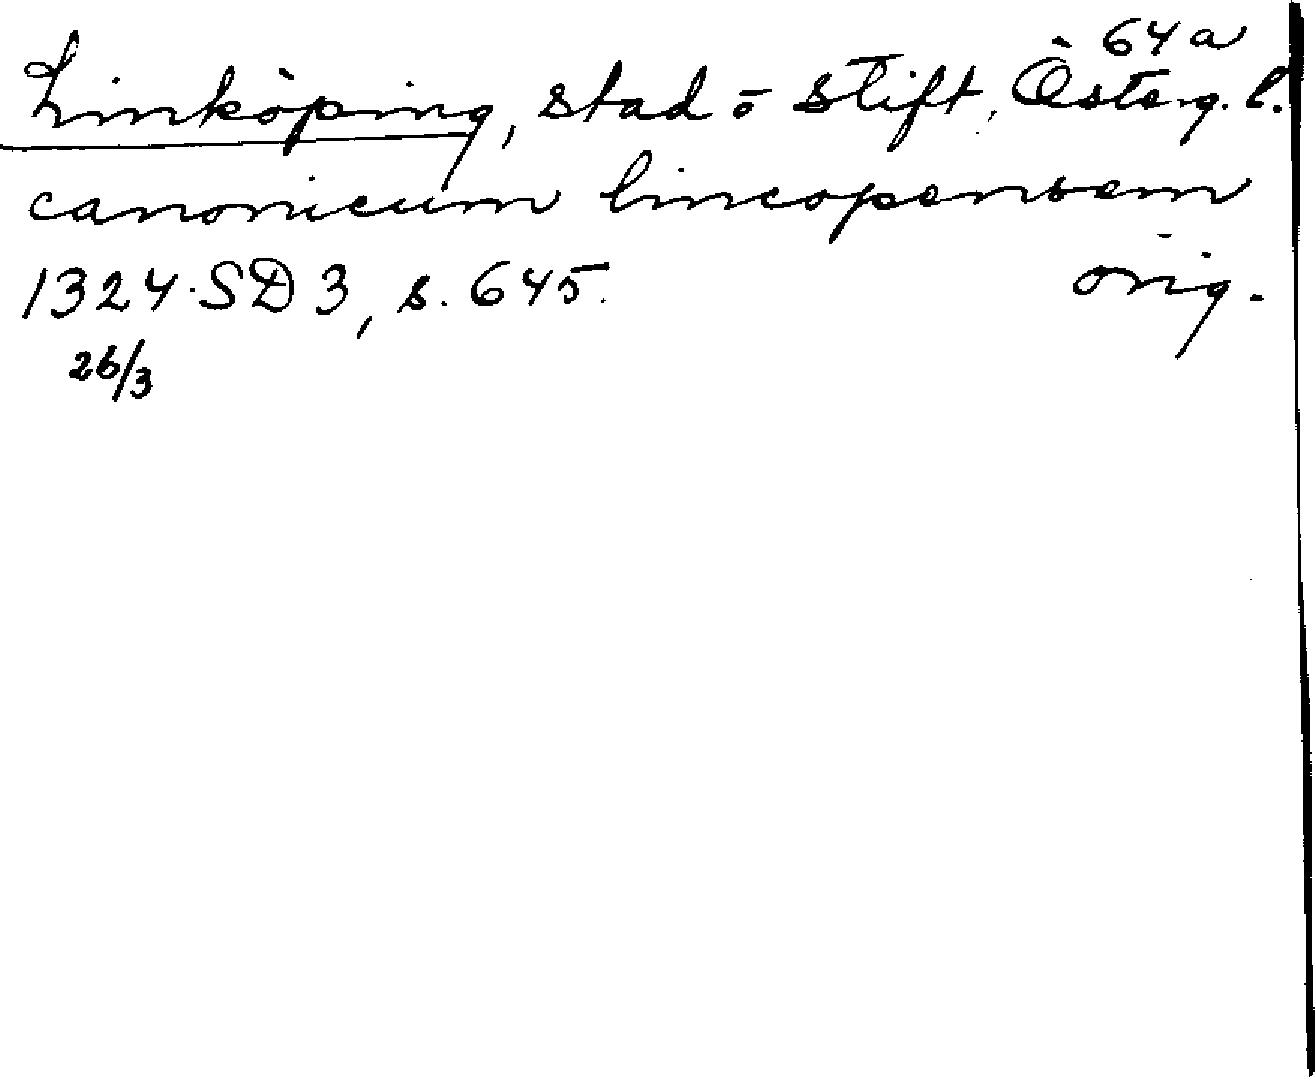 64 a
Linköping, stad o stift, Österg. l.
canonicum lincopensem
1324 SD 3, s. 645. orig.
26/3